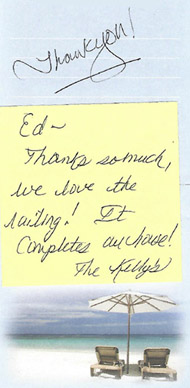 Thank you!
Ed~
Thanks so much,
we love the
railing! It
Completes our house!
The Kelly's